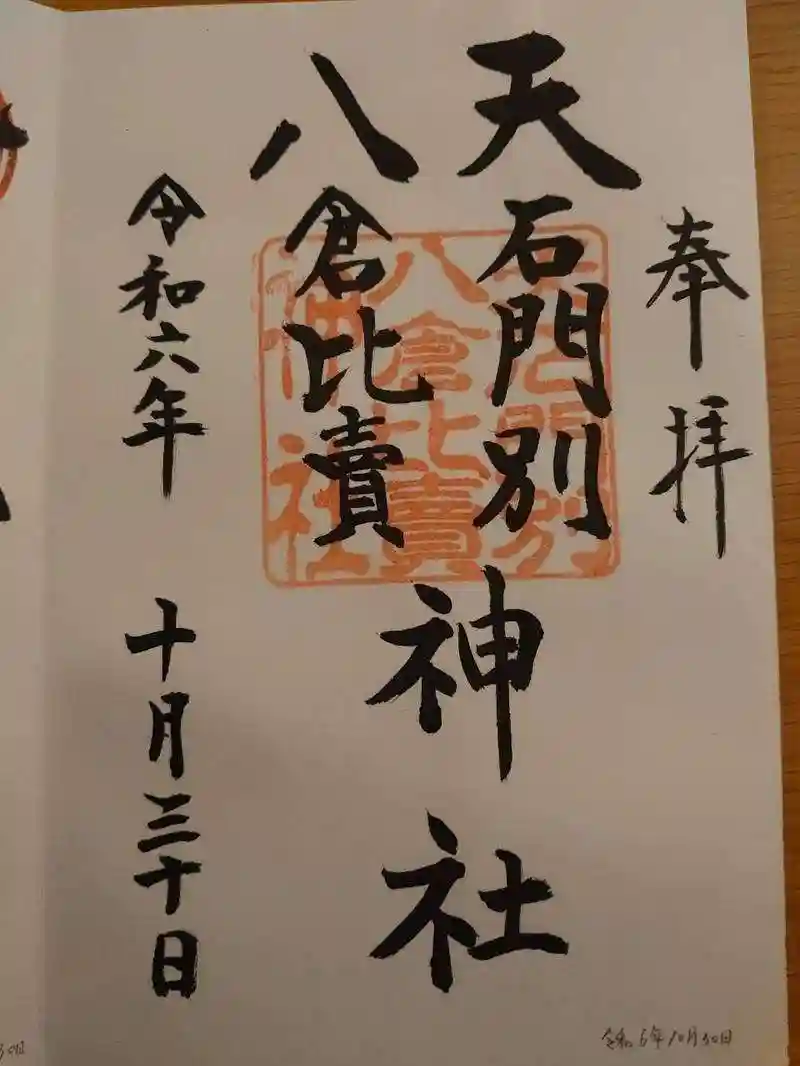 奉拝
天石門別
八倉比賣
神社
令和六年 十月三十日
天石門別
八倉比賣
神社
令和6年10月30日